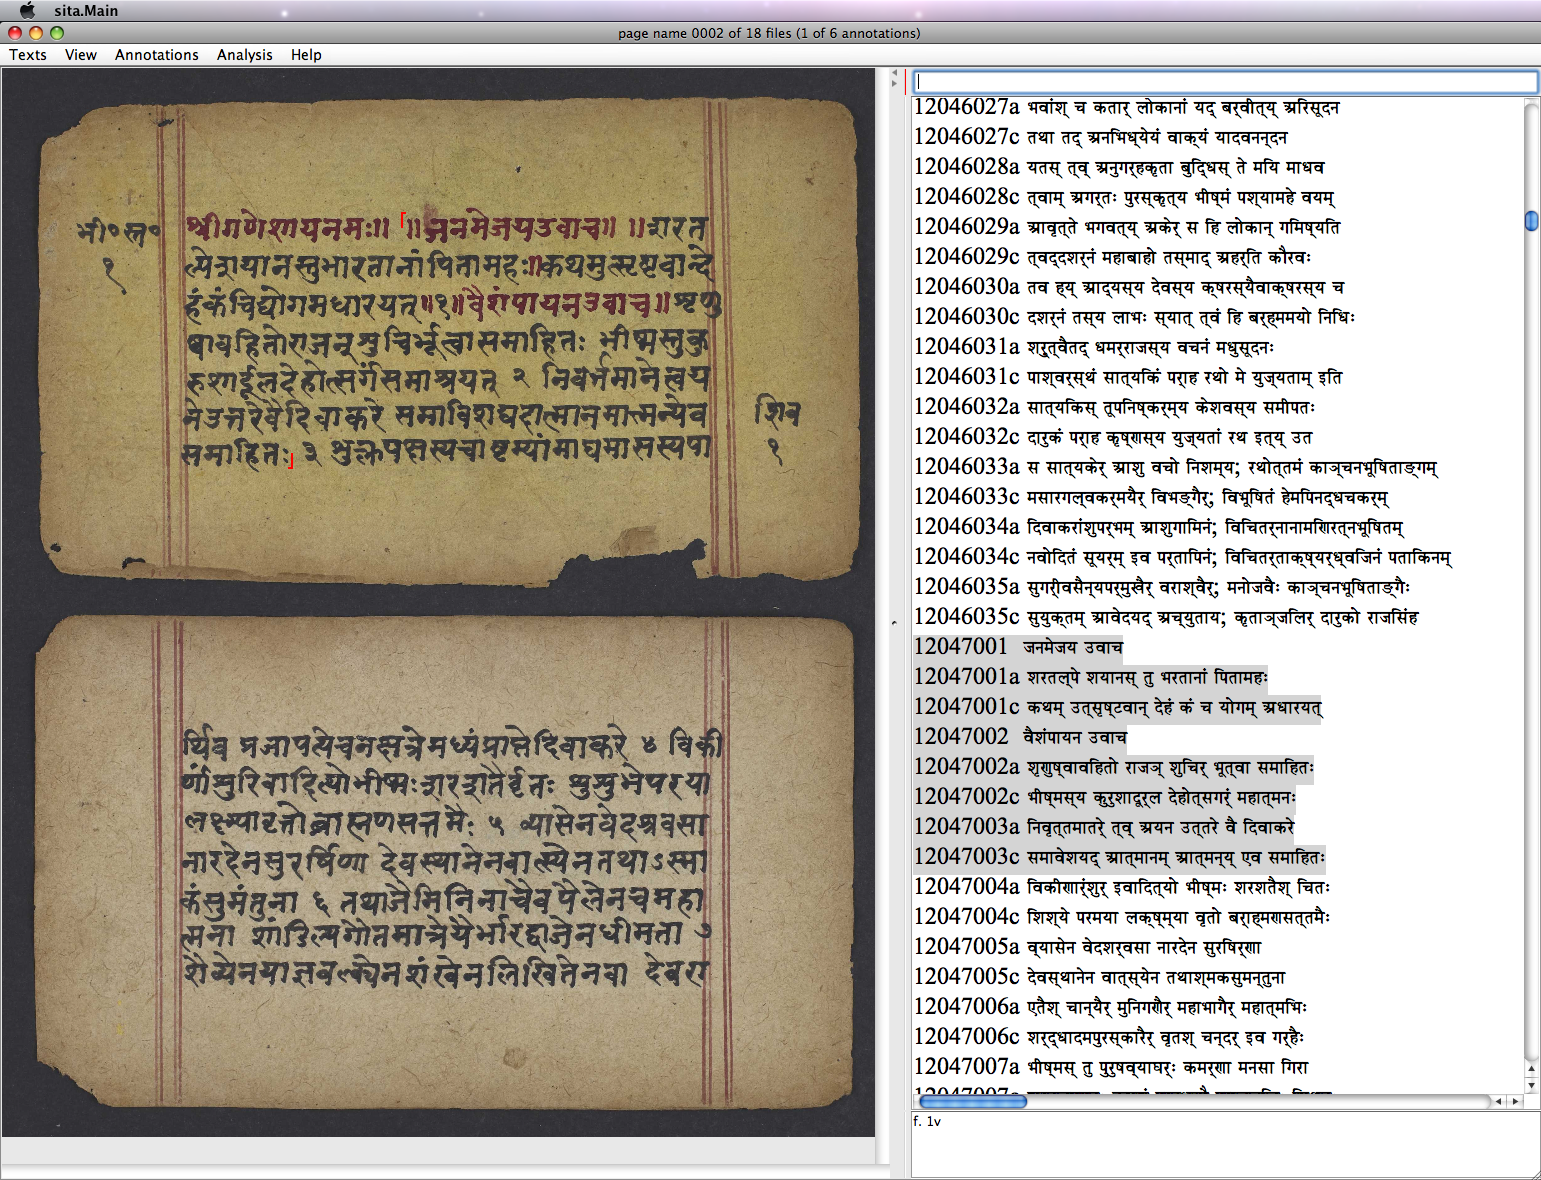 sita.Main
page name 0002 of 18 files (1 of 6 annotations)
Texts View Annotations Analysis Help
भी॰स्त॰
१
श्रीगणेशायनमः॥ ॥जनमेजयउवाच॥ ॥शरत
ल्पेशयानस्तुभारतानांपितामहः॥कथमुत्सृष्टवान्दे
हंकंचिद्योगमधारयत्॥१॥वैशंपायनउवाच॥शृणु
ष्वावहितोराजन्शुचिर्भूत्वासमाहितः भीष्मस्तुकु
रुशार्दूलदेहोत्सर्गंसमाश्रयत् २ निवर्त्तमानेत्वय
नेउत्तरेवैदिवाकरे समाविशद्यहात्मानमात्मन्येव
समाहितः ३ शुक्लपक्षस्यचाष्टम्यांमाघमासस्यपा
शिव
१
र्थिव प्रजापत्येचनक्षत्रेमध्यंप्राप्तेदिवाकरे ४ विकी
र्णांसुरिवादित्योभीष्मःशरशतैर्वृतः शुसुभेपरया
लक्ष्म्यावृतोब्राह्मणसत्तमैः ५ व्यासेनवेदश्रवसा
नारदेनसुरर्षिणा देवस्थानेनवात्स्येनतथाऽस्मा
कंसुमंतुना ६ तथाजैमिनिनाचैवपैलेनचमहा
त्मना शांडिल्यगौतमात्रेयैर्भारद्वाजेनधीमता ७
शैव्येनयाज्ञवल्क्येनशंखेनलिखितेनवा देवरा
12046027a भवांश् च कतार् लोकानां यद् बर्वीत्य् अरिसूदन
12046027c तथा तद् अनभिध्येयं वाक्यं यादवनन्दन
12046028a यतस् त्व् अनुगर्हकृता बुद्धिस् ते मयि माधव
12046028c त्वाम् अगर्तः पुरस्कृत्य भीष्मं पश्यामहे वयम्
12046029a आवृत्ते भगवत्य् अकेर् स हि लोकान् गमिष्यति
12046029c त्वद्दशर्नं महाबाहो तस्माद् अहर्ति कौरवः
12046030a तव ह्य् आद्यस्य देवस्य क्षरस्यैवाक्षरस्य च
12046030c दशर्नं तस्य लाभः स्यात् त्वं हि बर्ह्ममयो निधिः
12046031a शर्ुत्वैतद् धमर्राजस्य वचनं मधुसूदनः
12046031c पाश्वर्स्थं सात्यकिं पर्ाह रथो मे युज्यताम् इति
12046032a सात्यकिस् तूपनिष्कर्म्य केशवस्य समीपतः
12046032c दारुकं पर्ाह कृष्णस्य युज्यतां रथ इत्य् उत
12046033a स सात्यकेर् आशु वचो निशम्य; रथोत्तमं काञ्चनभूषिताङ्गम्
12046033c मसारगल्वकर्मयैर् विभङ्गैर्; विभूषितं हेमपिनद्धचकर्म्
12046034a दिवाकरांशुपर्भम् आशुगामिनं; विचितर्नानामणिरत्नभूषितम्
12046034c नवोदितं सूयर्म् इव पर्तापिनं; विचितर्ताक्ष्यर्ध्वजिनं पताकिनम्
12046035a सुगर्ीवसैन्यपर्मुखैर् वराश्वैर्; मनोजवैः काञ्चनभूषिताङ्गैः
12046035c सुयुक्तम् आवेदयद् अच्युताय; कृताञ्जलिर् दारुको राजसिंह
12047001 जनमेजय उवाच
12047001a शरतल्पे शयानस् तु भरतानां पितामहः
12047001c कथम् उत्सृष्टवान् देहं कं च योगम् अधारयत्
12047002 वैशंपायन उवाच
12047002a शृणुष्वावहितो राजञ् शुचिर् भूत्वा समाहितः
12047002c भीष्मस्य कुरुशादूर्ल देहोत्सगर्ं महात्मनः
12047003a निवृत्तमातरे् त्व् अयन उत्तरे वै दिवाकरे
12047003c समावेशयद् आत्मानम् आत्मन्य् एव समाहितः
12047004a विकीणार्ंशुर् इवादित्यो भीष्मः शरशतैश् चितः
12047004c शिश्ये परमया लक्ष्म्या वृतो बर्ाह्मणसत्तमैः
12047005a व्यासेन वेदशर्वसा नारदेन सुरषिर्णा
12047005c देवस्थानेन वात्स्येन तथाश्मकसुमन्तुना
12047006a एतैश् चान्यैर् मुनिगणैर् महाभागैर् महात्मभिः
12047006c शर्द्धादमपुरस्कारैर् वृतश् चन्दर् इव गर्हैः
12047007a भीष्मस् तु पुरुषव्याघर्ः कमर्णा मनसा गिरा
f. 1v